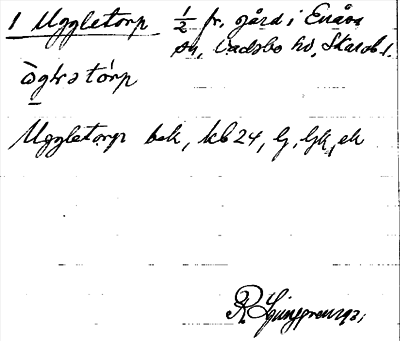 1 Uggletorp 1/2 fr. gård i Enåsa
sn, Vadsbo hd, Skarab. l.
Uggletorp bek, kb 24, G, Gk, ek
R Ljunggren